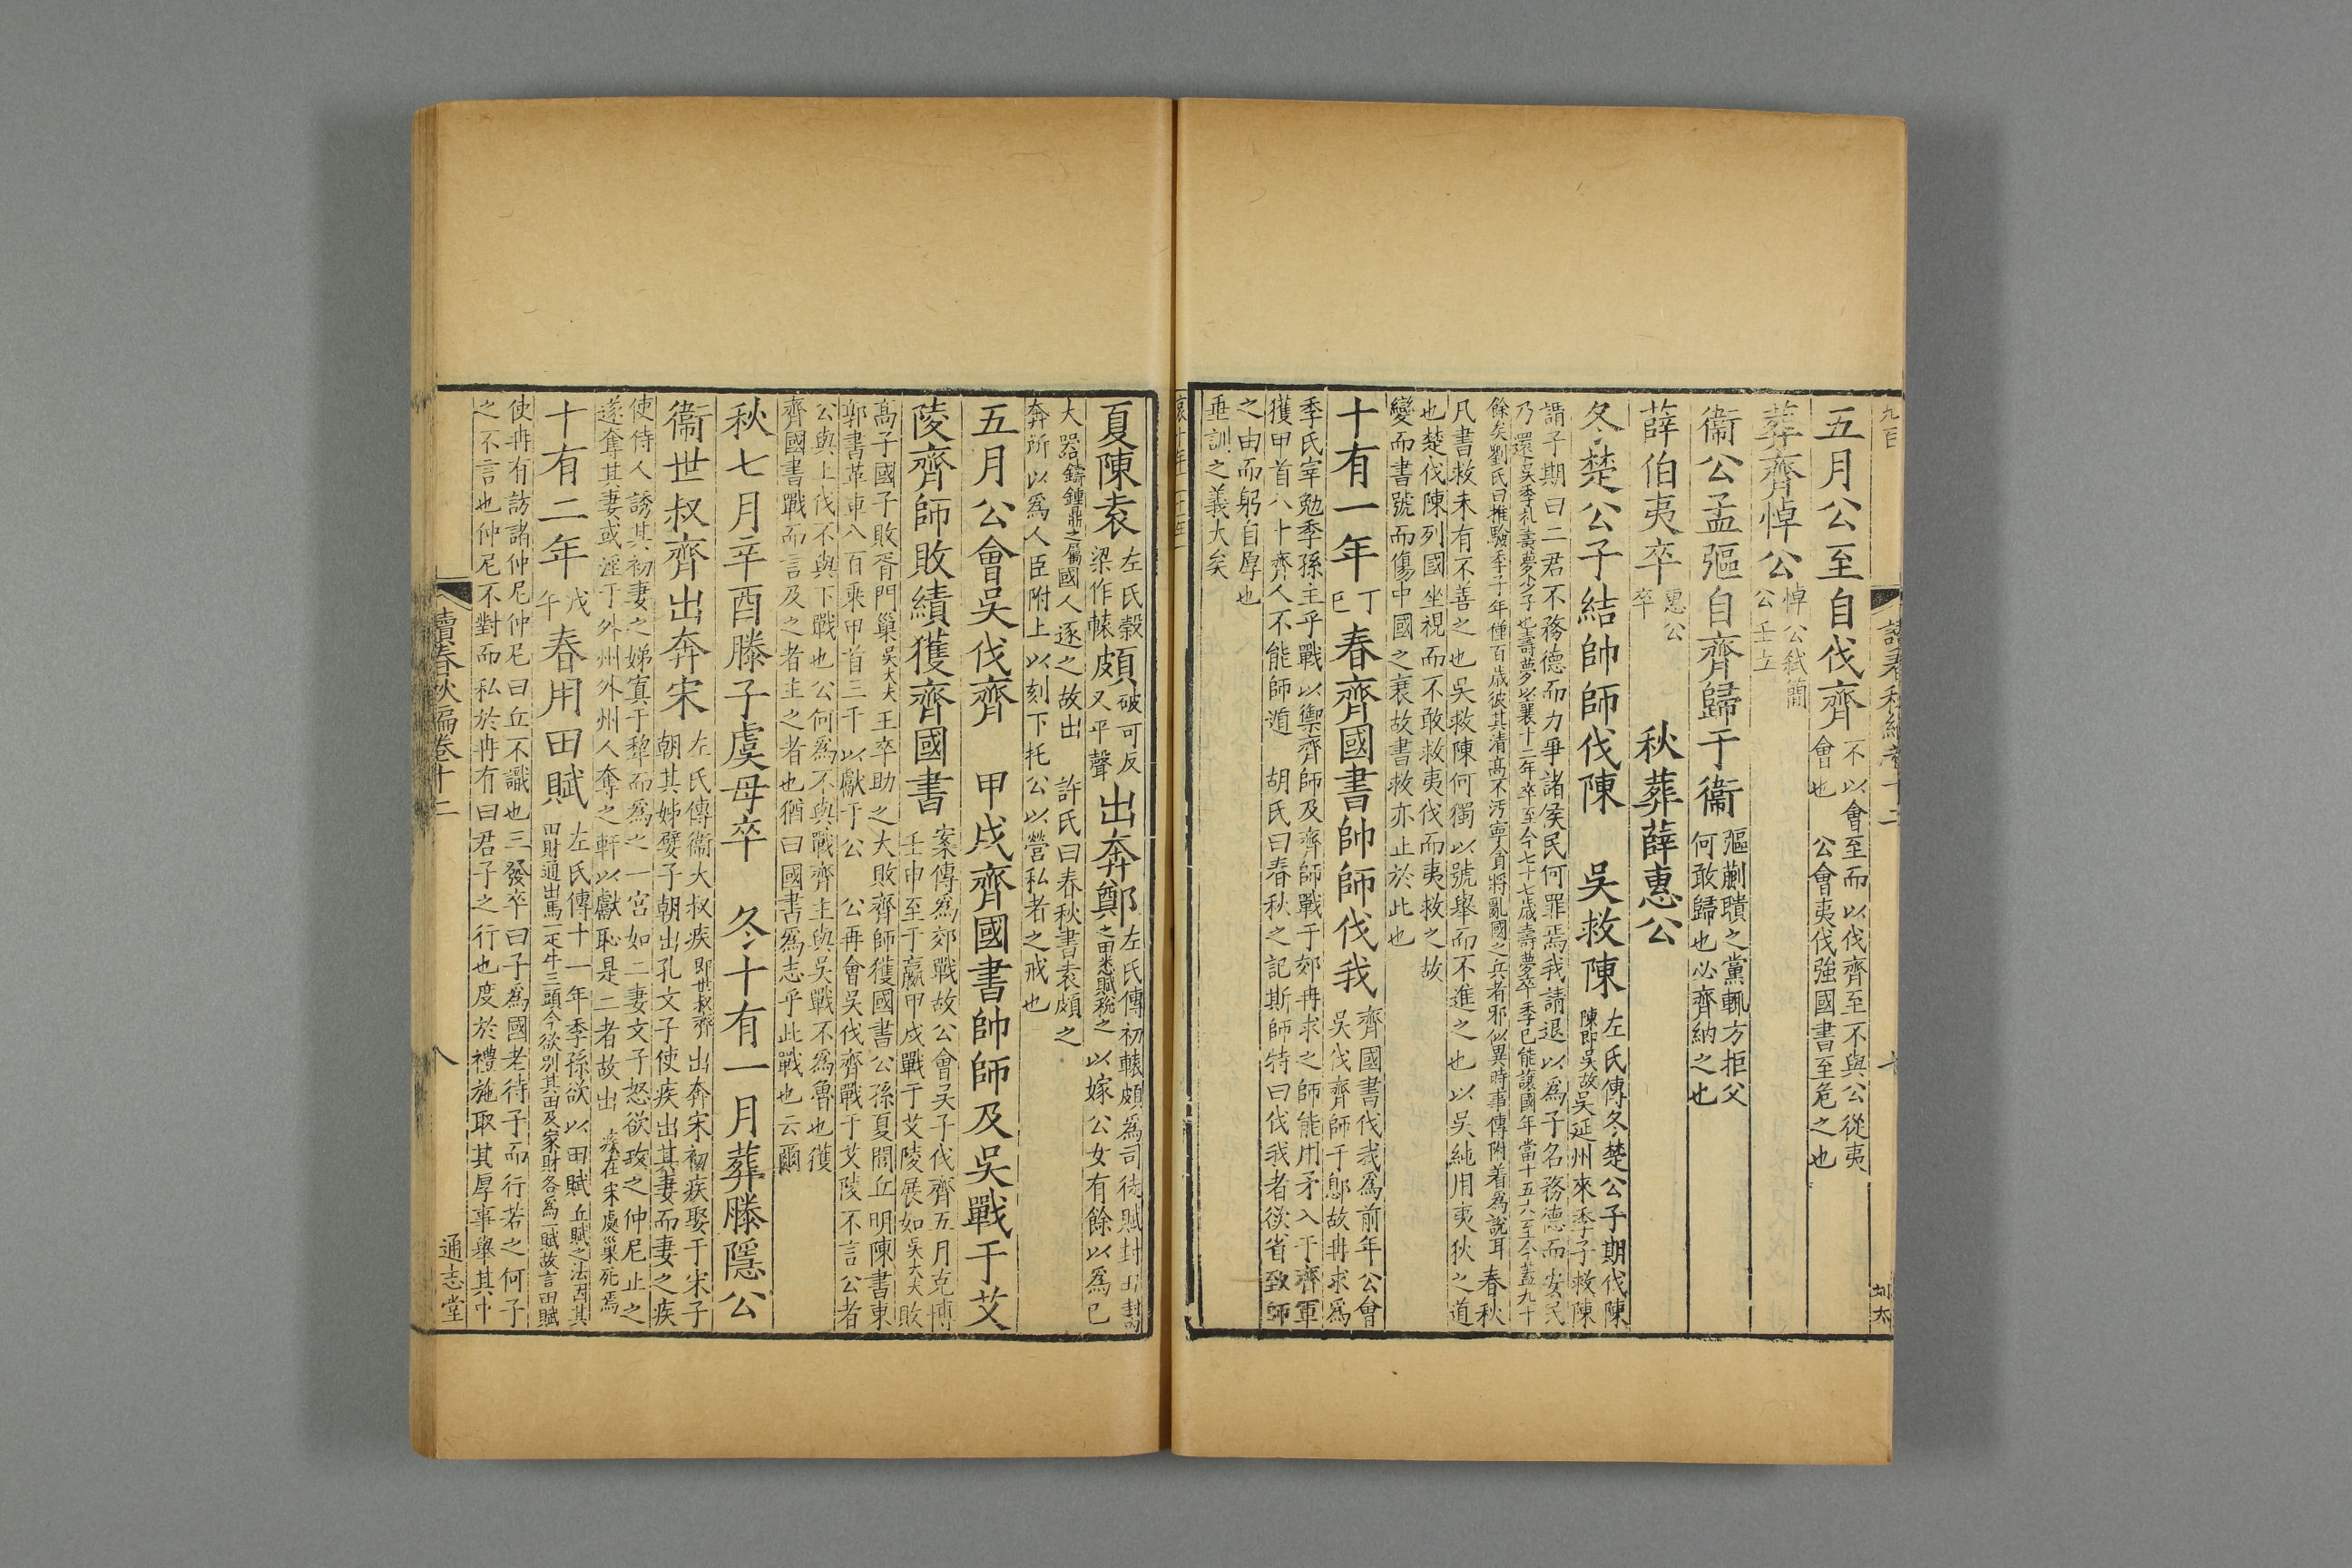 九百
讀春秋編卷十二
五月公至自伐齊
不以會至而以伐齊至不與公從夷
會也 公會夷伐強國書至危之也
葬齊悼公
悼公弒簡
公壬立
衞公孟彄自齊歸于衞
彄蒯聵之黨輒方拒父
何敢歸也必齊納之也
薛伯夷卒
惠公
卒
秋葬薛惠公
冬楚公子結帥師伐陳 吳救陳
左氏傳冬楚公子期伐陳
陳即吳故吳延州來季子救陳
謂子期曰二君不務德而力爭諸侯民何罪焉我請退以為子名務德而安民
乃還吳季札壽夢少子也壽夢以襄十二年卒至今七十七歲壽夢卒季已能讓國年當十五六至今蓋九十
餘矣劉氏曰推驗季子年僅百歲彼其清高不汚寧貪將亂國之兵者邪似異時事傳附着為說耳 春秋
凡書救未有不善之也吳救陳何獨以號舉而不進之也以吳純用夷狄之道
也楚伐陳列國坐視而不敢救夷伐而夷救之故
變而書號而傷中國之衰故書救亦止於此也
十有一年
丁
巳
春齊國書帥師伐我
齊國書伐我為前年公會
吳伐齊師于鄎故冉求為
季氏宰勉季孫主乎戰以禦齊師及齊師戰于郊冉求之師能用矛入于齊軍
獲甲首八十齊人不能師遁 胡氏曰春秋之記斯師特曰伐我者欲省致師
之由而躬自厚也
垂訓之義大矣
夏陳袁
左氏穀
梁作轅
頗
破可反
又平聲
出奔鄭
左氏傳初轅頗為司徒賦封田封
之田悉賦稅之以嫁公女有餘以為已
大器鑄鍾鼎之屬國人逐之故出 許氏曰春秋書袁頗之
奔所以為人臣附上以刻下托公以營私者之戒也
五月公會吳伐齊 甲戌齊國書帥師及吳戰于艾
陵齊師敗績獲齊國書
案傳為郊戰故公會吳子伐齊五月克博
壬申至于嬴甲戌戰于艾陵展如吳大夫敗
高子國子敗胥門巢吳大夫王卒助之大敗齊師獲國書公孫夏閭丘明陳書東
郭書革車八百乘甲首三千以獻于公 公再會吳伐齊戰于艾陵不言公者
公與上伐不與下戰也公何為不與戰齊主與吳戰不為魯也獲
齊國書戰而言及之者主之者也猶曰國書為志乎此戰也云爾
秋七月辛酉滕子虞母卒 冬十有一月葬滕隱公
衞世叔齊出奔宋
左氏傳衞大叔疾即世叔齊出奔宋初疾娶于宋子
朝其娣嬖子朝出孔文子使疾出其妻而妻之疾
使侍人誘其初妻之娣寘于犂而為之一宮如二妻文子怒欲攻之仲尼止之
遂奪其妻或淫于外州外州人奪之軒以獻恥是二者故出 疾在宋處巢死焉
十有二年
戊
午
春用田賦
左氏傳十一年季孫欲以田賦 丘賦之法因其
田財通出馬一疋牛三頭今欲別其田及家財各為一賦故言田賦
使冉有訪諸仲尼仲尼曰丘不識也三發卒曰子為國老待子而行若之何子
之不言也仲尼不對而私於冉有曰君子之行也度於禮施取其厚事舉其中
讀春秋編卷十二
八
通志堂